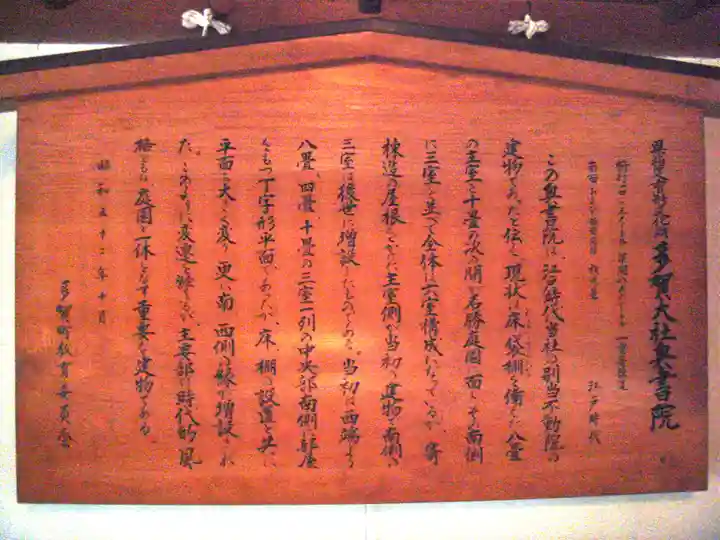 県指定有形文化財 多賀大社奥書院
江戸時代
この奥書院は、江戸時代当社の別当不動院の
建物であったと伝え、現状は床、袋棚を備えた八畳
の主室と十畳の次の間が名勝庭園に面し、その南側
に三室が並んで全体は六室構成になっているが、寄
棟造の屋根をいただく主室側が当初の建物で南側の
三室は後世に増設したものである。当初は西端より
八畳、四畳、十畳の三室一列の中央部南側に部屋
をもつ丁字形平面であったが、床、棚の設置と共に
平面は大きく変り、更に南、西側の縁が増設され
た。このように変遷を経ているが、主要部は時代的風
格をもち庭園と一体をなす重要な建物である。
昭和五十二年十月
多賀町教育委員会